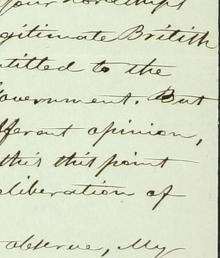 your Lordships
egitimate British
ntitled to the
Government. But
fferent opinion,
this this point
eliberation of
observe, My